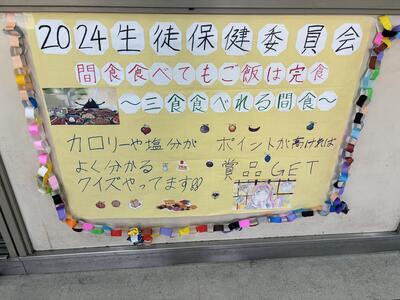 2024生徒保健委員会
間食食べてもご飯は完食
～三食食べれる間食～
カロリーや塩分が
よく分かる
クイズやってます!!
ポイントが高ければ
賞品GET